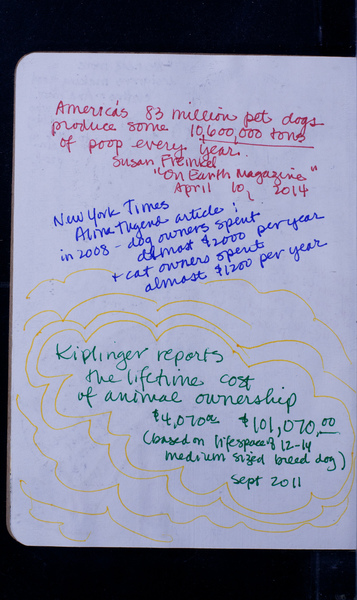 America's 83 million pet dogs
produce some 10,600,000 tons
of poop every year.
Susan Freinkel
"On Earth Magazine"
April 10, 2014
New York Times
Alina Tugend article:
in 2008 - dog owners spent
almost $2000 per year
+ cat owners spent
almost $1200 per year
Kiplinger reports
the lifetime cost
of animal ownership
$4,070.00 $101,070.00
(based on lifespace of 12-14
medium sized breed dog)
Sept 2011